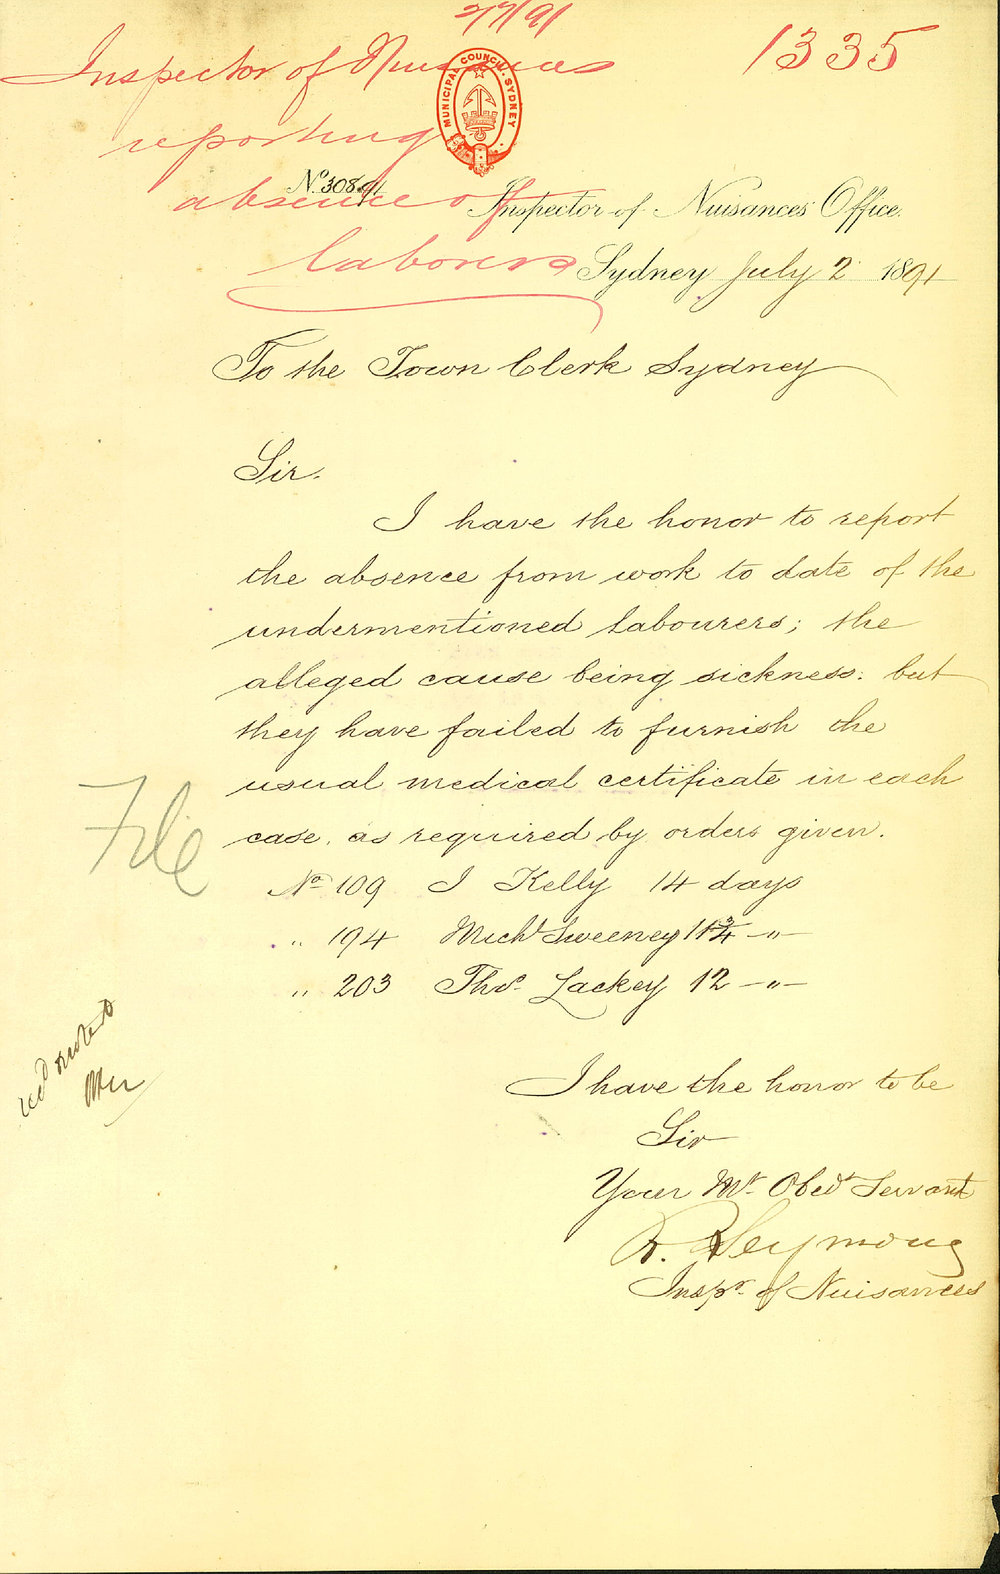 2/7/91
1335
Inspector of Nuisances
reporting
absence of
laborers
MUNICIPAL COUNCIL, SYDNEY
No. 308/91
Inspector of Nuisances Office.
Sydney July 2 1891
To the Town Clerk Sydney
Sir.
I have the honor to report
the absence from work to date of the
undermentioned labourers; the
alleged cause being sickness. but
they have failed to furnish the
usual medical certificate in each
case. as required by orders given.
File
No 109 J Kelly 14 days
" 194 Michl Sweeney 11 3/4 -"-
" 203 Thos. Lackey 12 -"-
I have the honor to be
Sir
Your Mt. Obedt Servant
R. Seymour
Inspr. of Nuisances